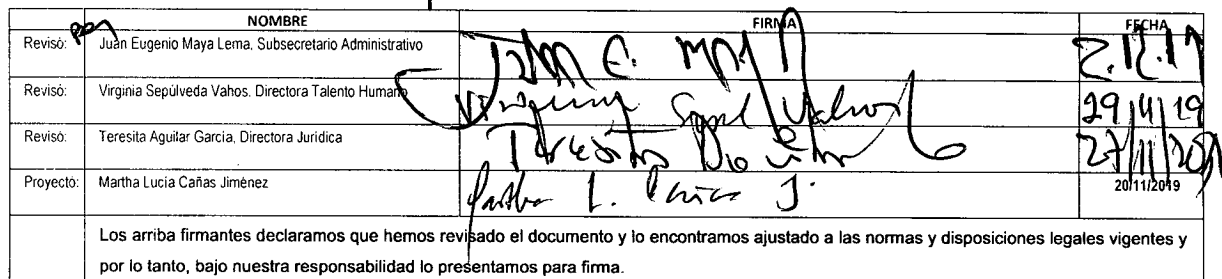 NOMBRE FIRMA FECHA
Revisó: Juan Eugenio Maya Lema. Subsecretario Administrativo Juan E. 2.12.19
Revisó: Virginia Sepúlveda Vahos. Directora Talento Humano Virginia Sepul Vahos
Revisó: Teresita Aguilar García, Directora Jurídica Teresita Aguilar
Proyectó: Martha Lucía Cañas Jiménez Martha L. Cañas J. 20/11/2019
Los arriba firmantes declaramos que hemos revisado el documento y lo encontramos ajustado a las normas y disposiciones legales vigentes y
por lo tanto, bajo nuestra responsabilidad lo presentamos para firma.